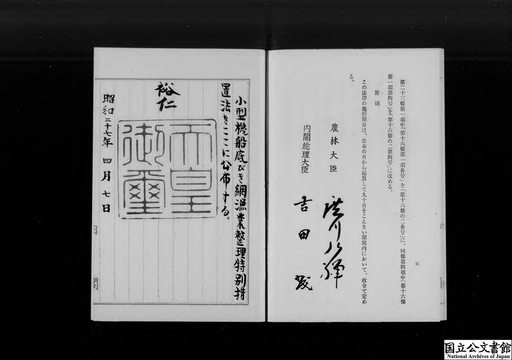 第二十三條第一項中「第十六條第一項各号」を「第十六條の二各号」に、同條第四項中「第十六條
第一項第四号」を「第十六條の二第四号」に改める。
附則
この法律の施行期日は、公布の日から起算して九十日をこえない期間内において、政令で定め
る。
農林大臣 廣川弘禅
内閣総理大臣 吉田茂
小型機船底びき網漁業整理特別措
置法をここに公布する。
裕仁
天皇
御璽
昭和二十七年四月七日
国立公文書館
National Archives of Japan